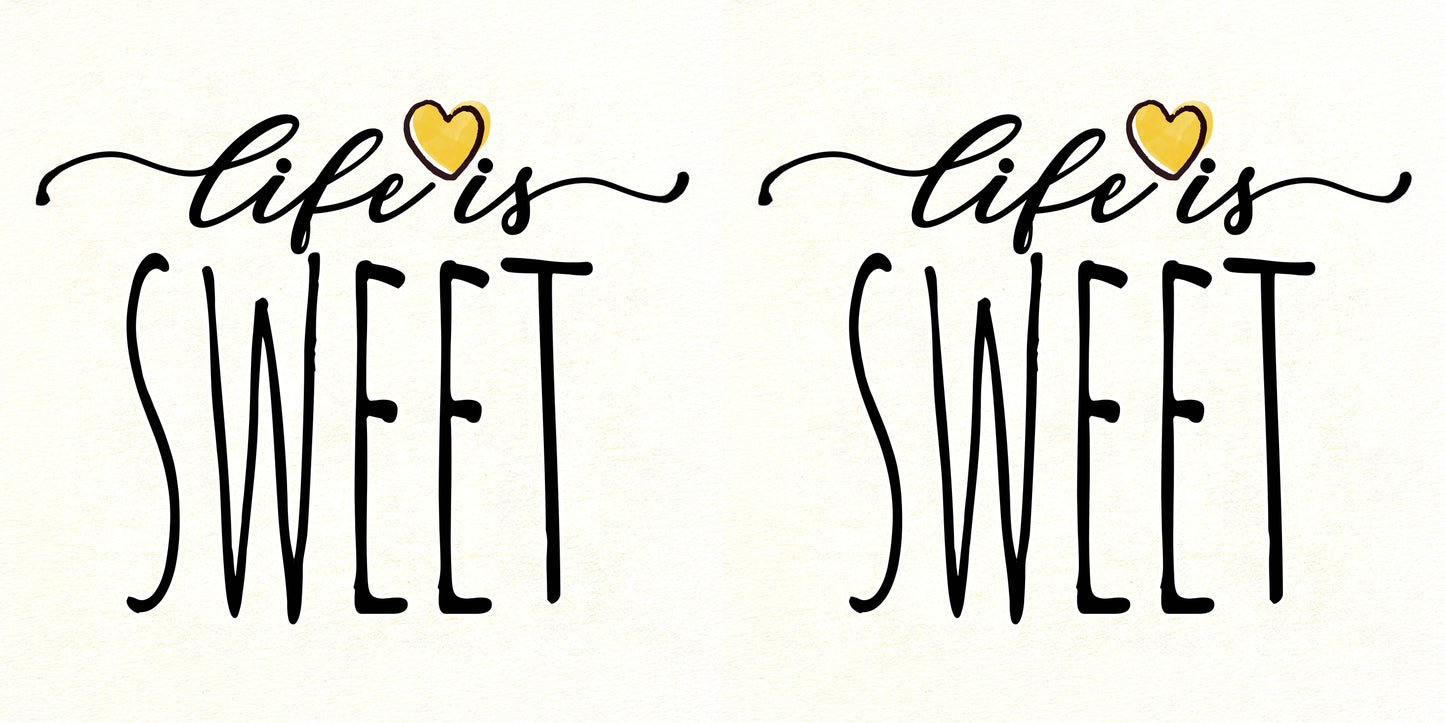 life is life is
SWEET SWEET